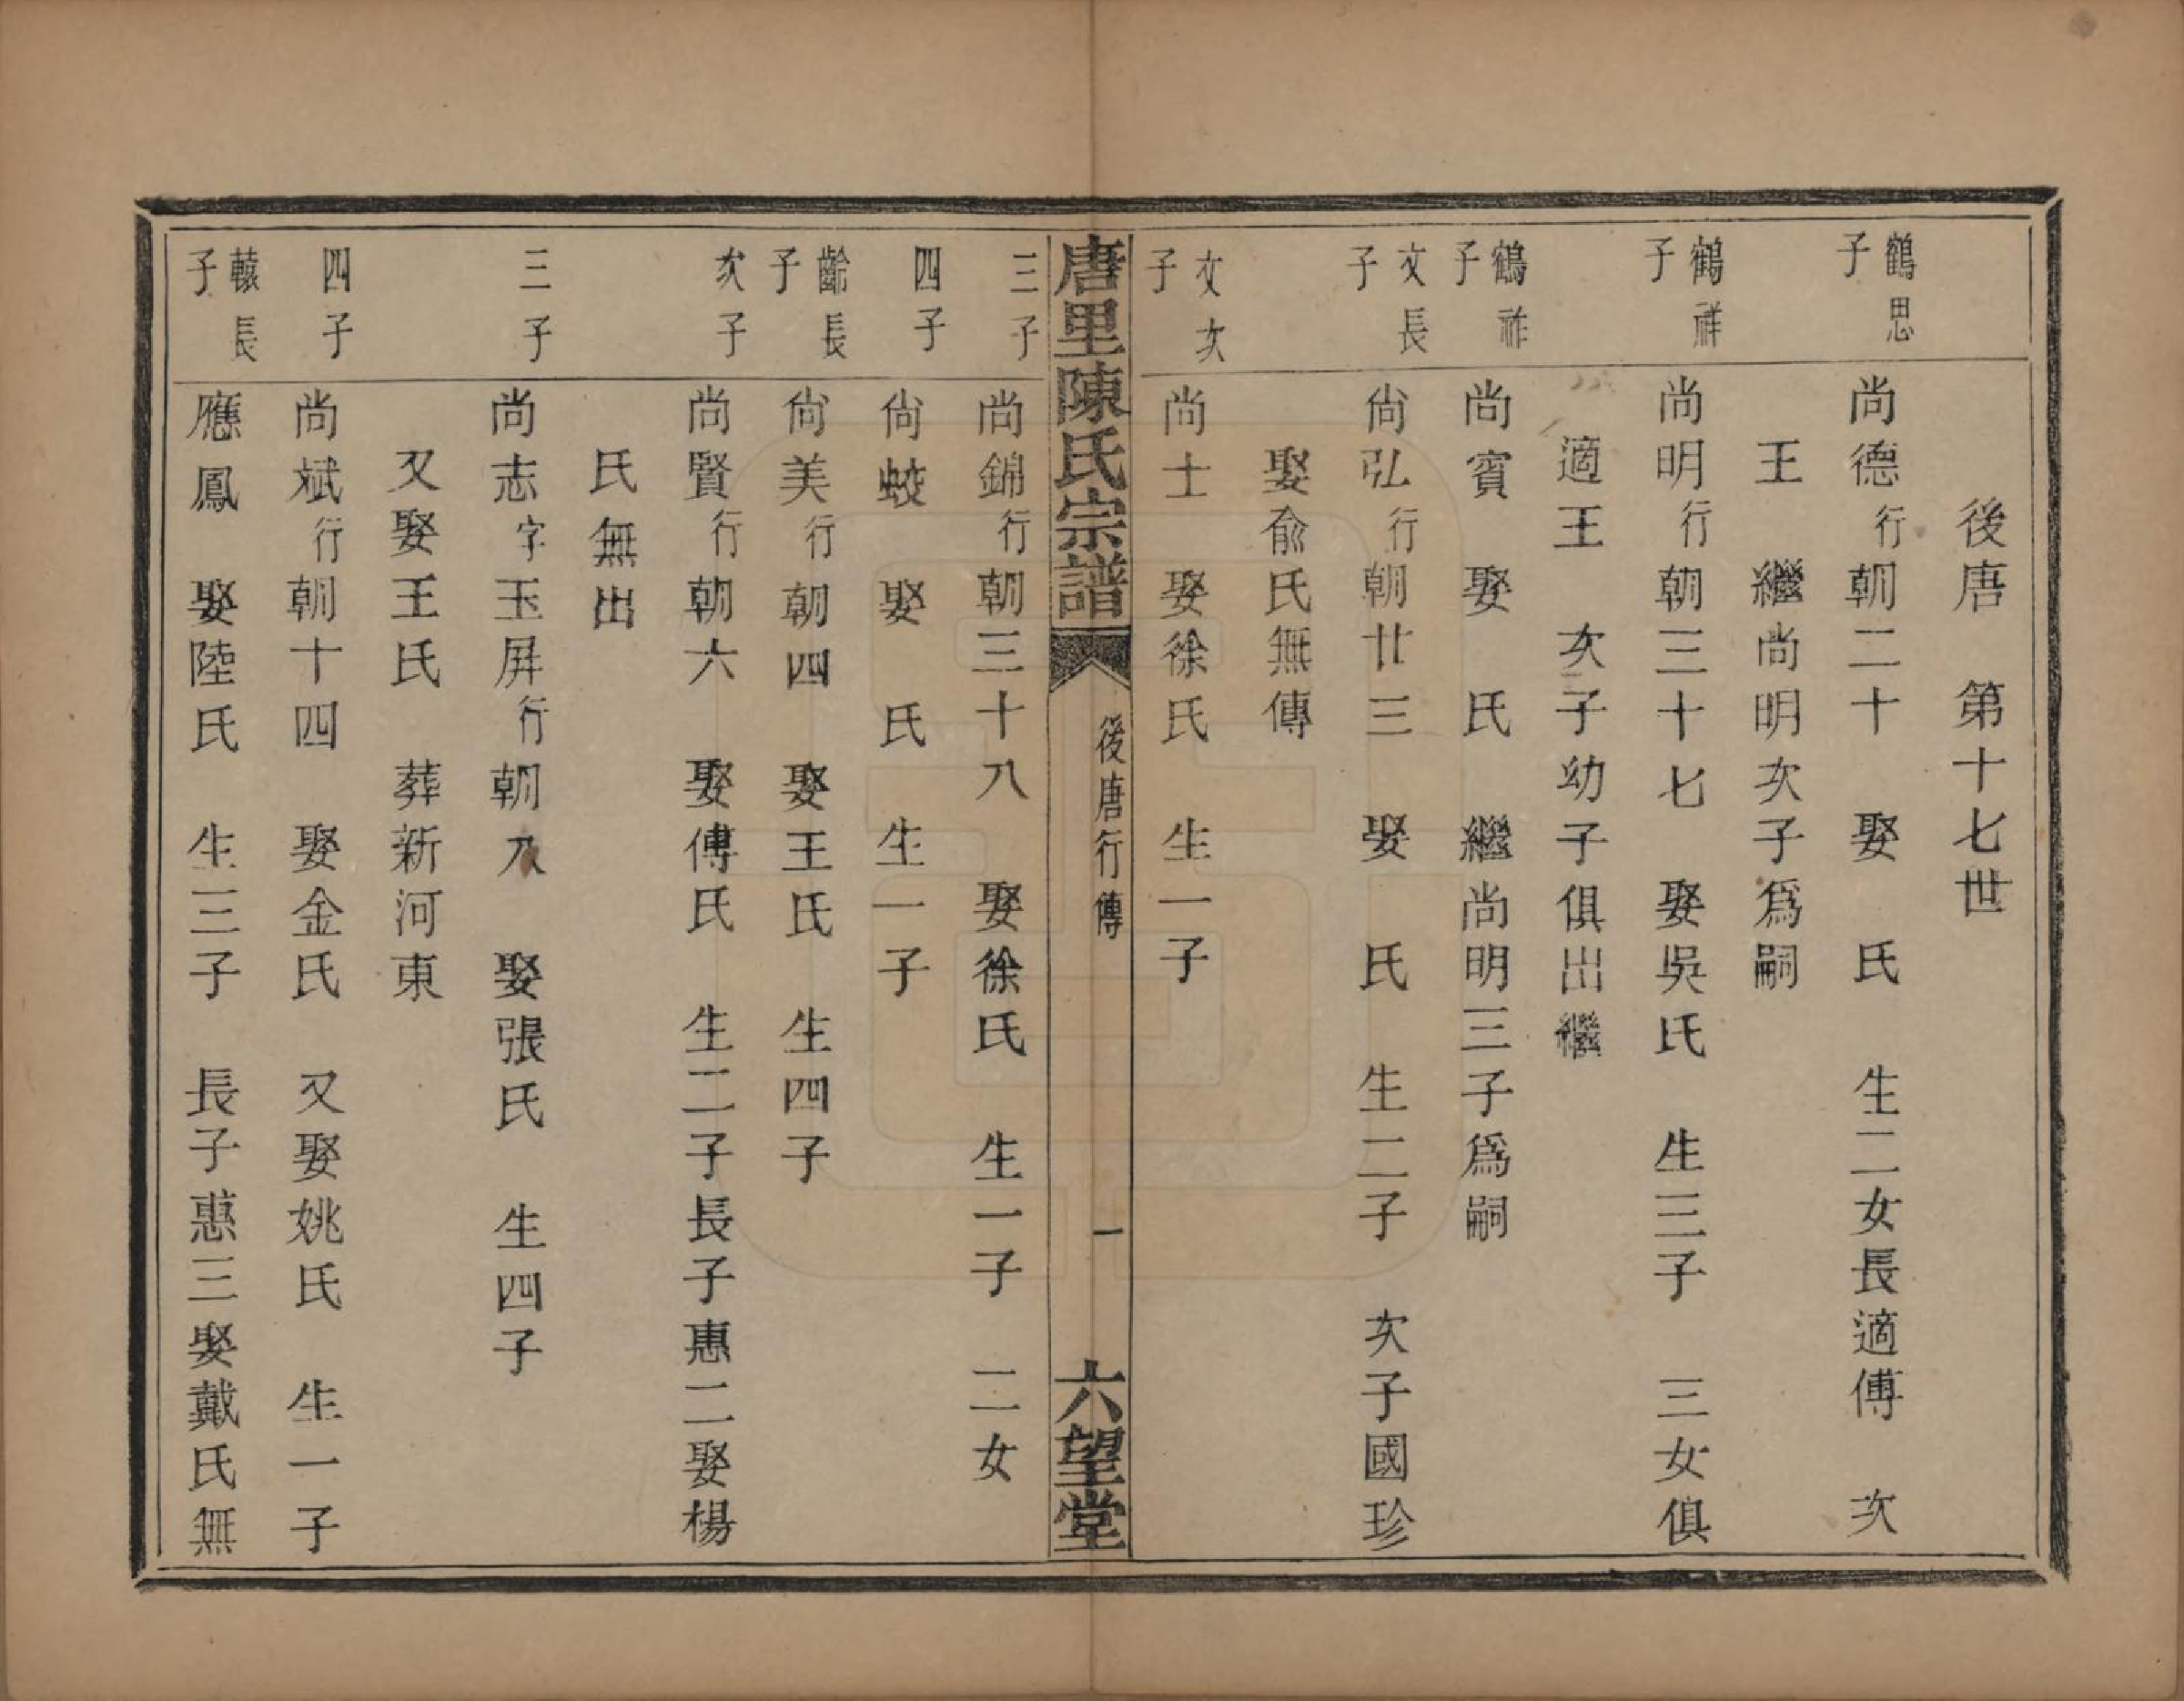 後唐　第十七世
鶴思子
尚德行朝二十　娶　氏　生二女長適傅　次
王　繼尚明次子爲嗣
鶴祥子
尚明行朝三十七　娶吳氏　生三子　三女俱
適王　次子幼子俱出繼
鶴祚子
尚賓　娶　氏　繼尚明三子爲嗣
文長子
尙弘行朝廿三　娶　氏　生二子　次子國珍
娶俞氏無傳
文次子
尚士　娶徐氏　生一子
唐里陳氏宗譜　後唐行傳　一　六望堂
三子
尚錦行朝三十八　娶徐氏　生一子　二女
四子
尙蛟　娶　氏　生一子
齡長子
尙美行朝四　娶王氏　生四子
次子
尚賢行朝六　娶傅氏　生二子長子惠二娶楊
氏無出
三子
尚志字玉屏行朝八　娶張氏　生四子
又娶王氏　葬新河東
四子
尚斌行朝十四　娶金氏　又娶姚氏　生一子
轅長子
應鳳　娶陸氏　生三子　長子惠三娶戴氏無